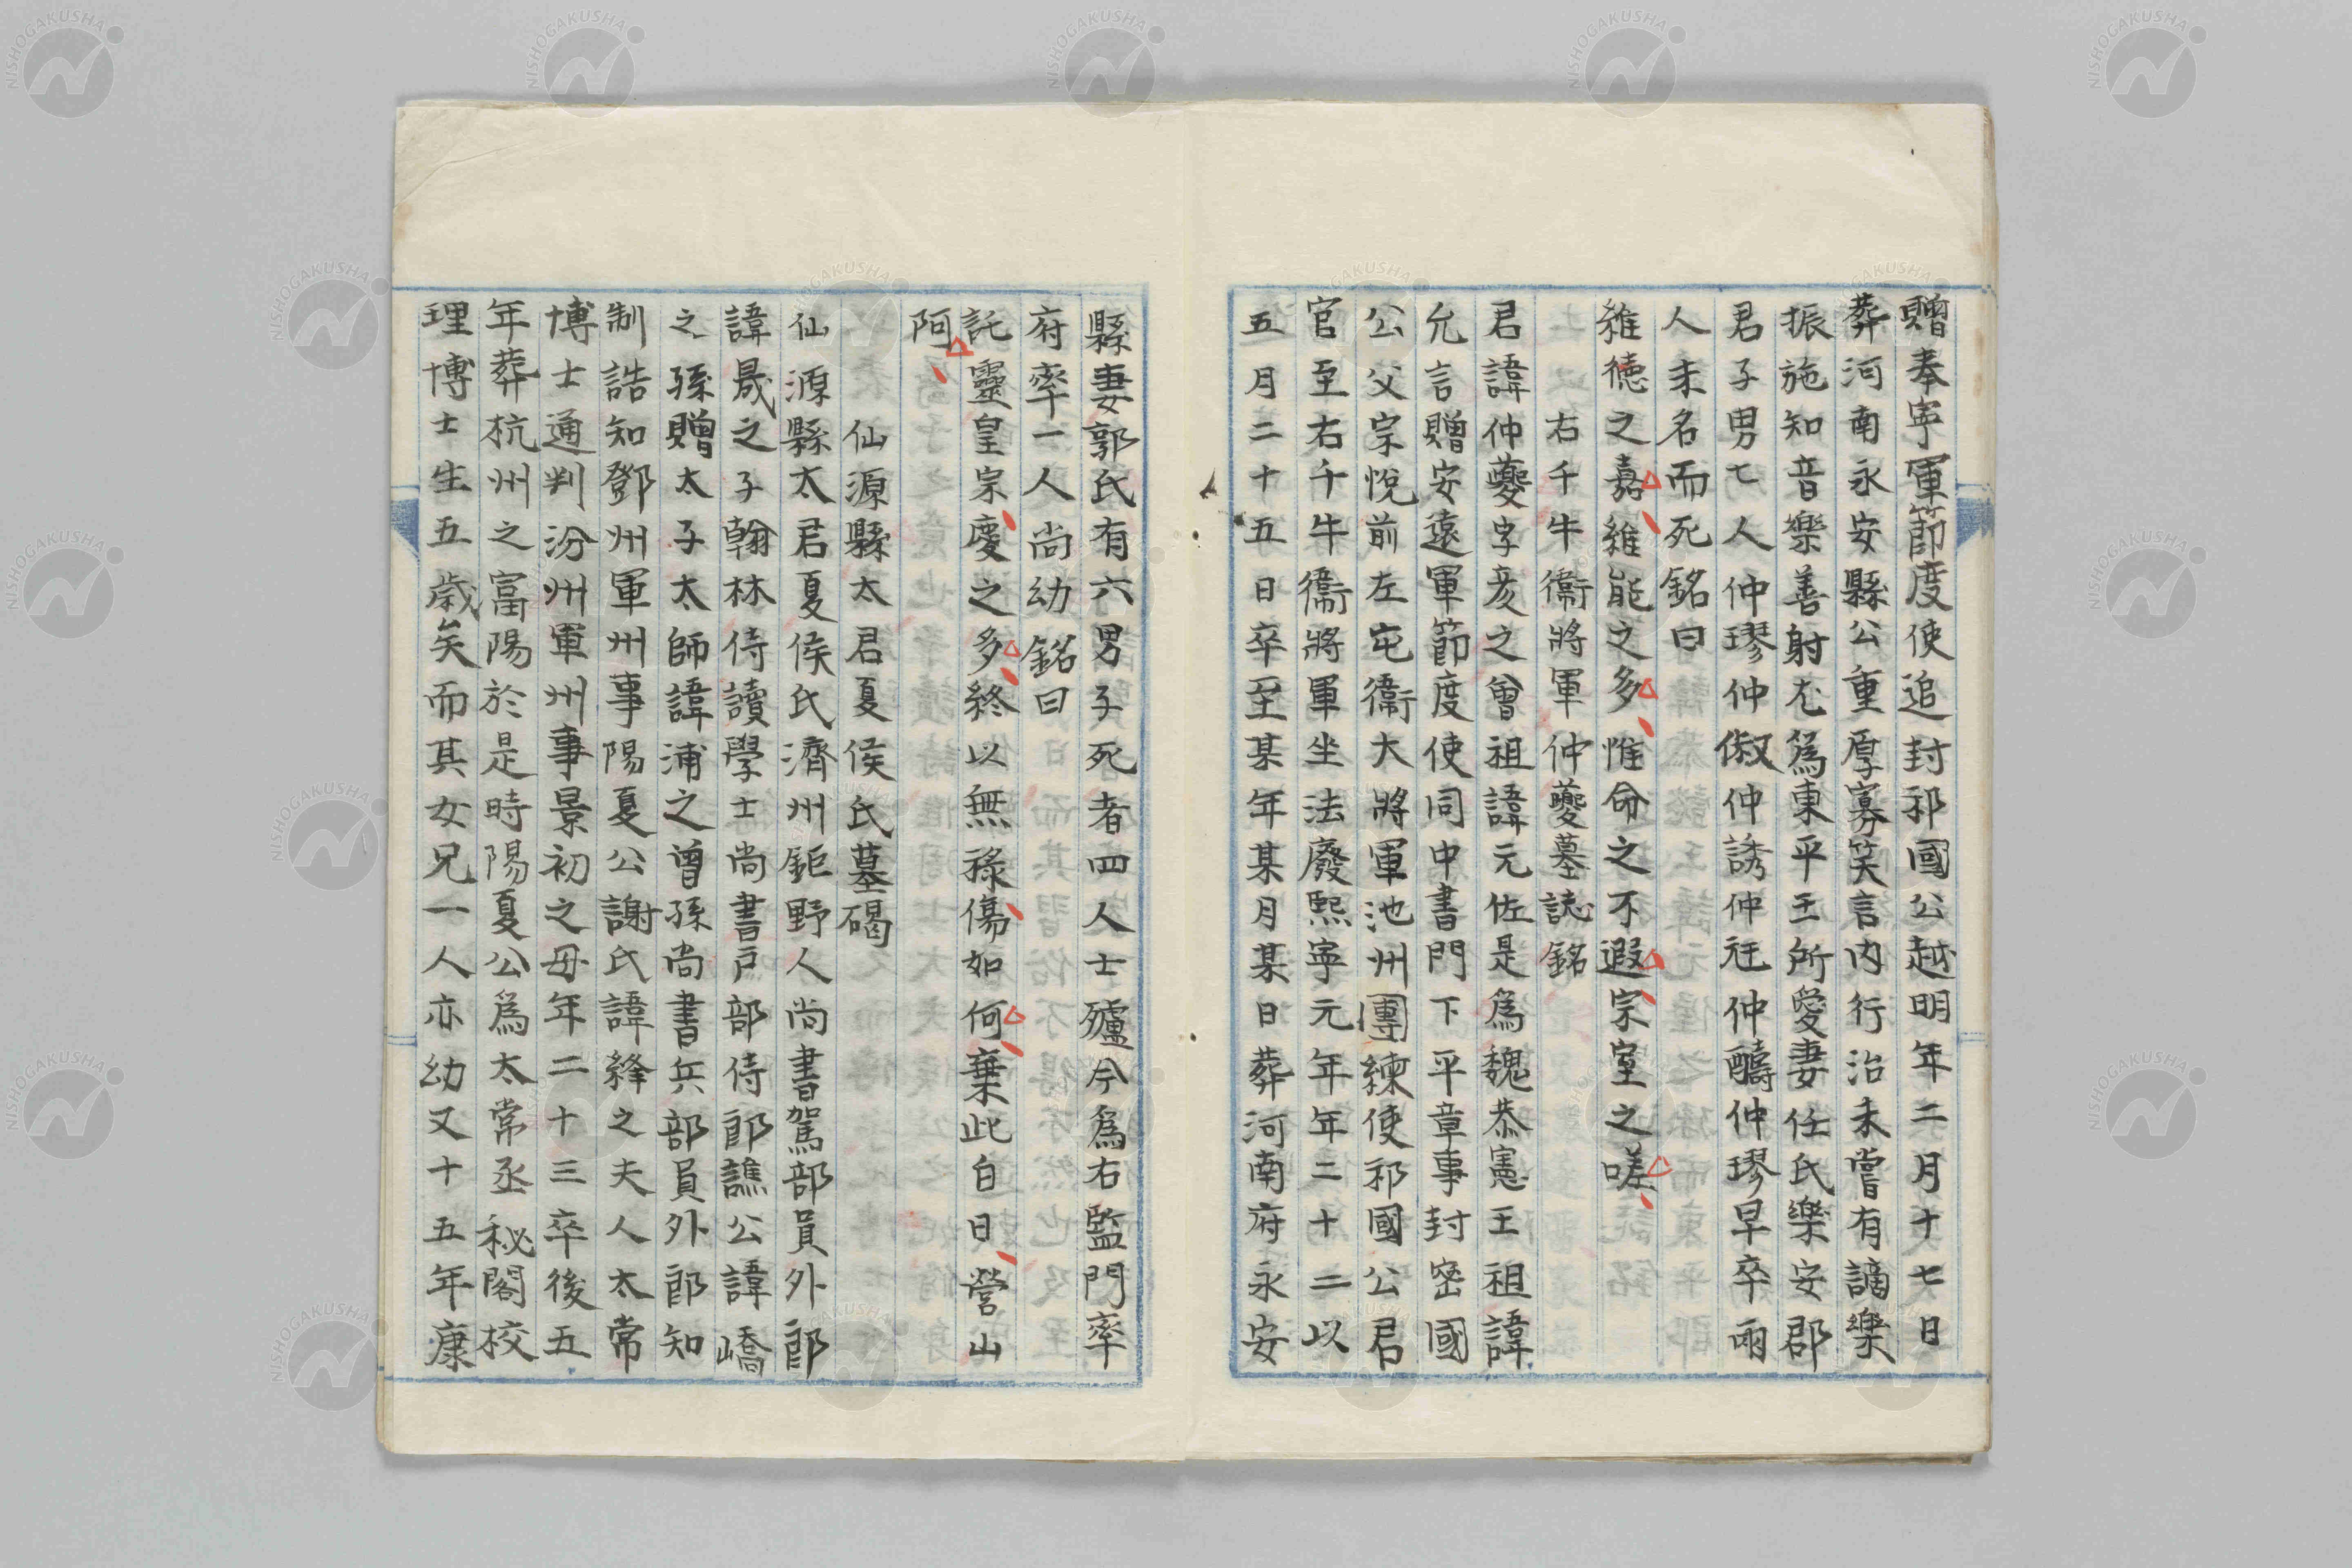 贈奉寧軍節度使追封祁國公越明年二月十七日
葬河南永安縣公重厚寡笑言内行治未嘗有謫樂
振施知音樂善射尤為東平王所愛妻任氏樂安郡
君子男七人仲璆仲俶仲誘仲仲醻仲璆早卒兩
人未名而死銘曰
維德之嘉維能之多惟命之不遐宗室之嗟
右千牛衞將軍仲夔墓誌銘
君諱仲夔字彥之曾祖諱元佐是為魏恭憲王祖諱
允言贈安遠軍節度使同中書門下平章事封密國
公父宗悅前左屯衞大將軍池州團練使祁國公君
官至右千牛衞將軍坐法廢熙寧元年年二十二以
五月二十五日卒至某年某月某日葬河南府永安
縣妻郭氏有六男子死者四人士矑今為右監門率
府率一人尚幼銘曰
託靈皇宗慶之多終以無祿傷如何棄此白日營山
阿
仙源縣太君夏侯氏墓碣
仙源縣太君夏侯氏濟州鉅野人尚書駕部員外郎
諱晟之子翰林侍讀學士尚書戸部侍郎譙公諱嶠
之孫贈太子太師諱浦之曾孫尚書兵部員外郎知
制誥知鄧州軍州事陽夏公謝氏諱絳之夫人太常
博士通判汾州軍州事景初之母年二十三卒後五
年葬杭州之富陽於是時陽夏公為太常丞秘閣校
理博士生五歲矣而其女兄一人亦幼又十五年康
NISHOGAKUSHA